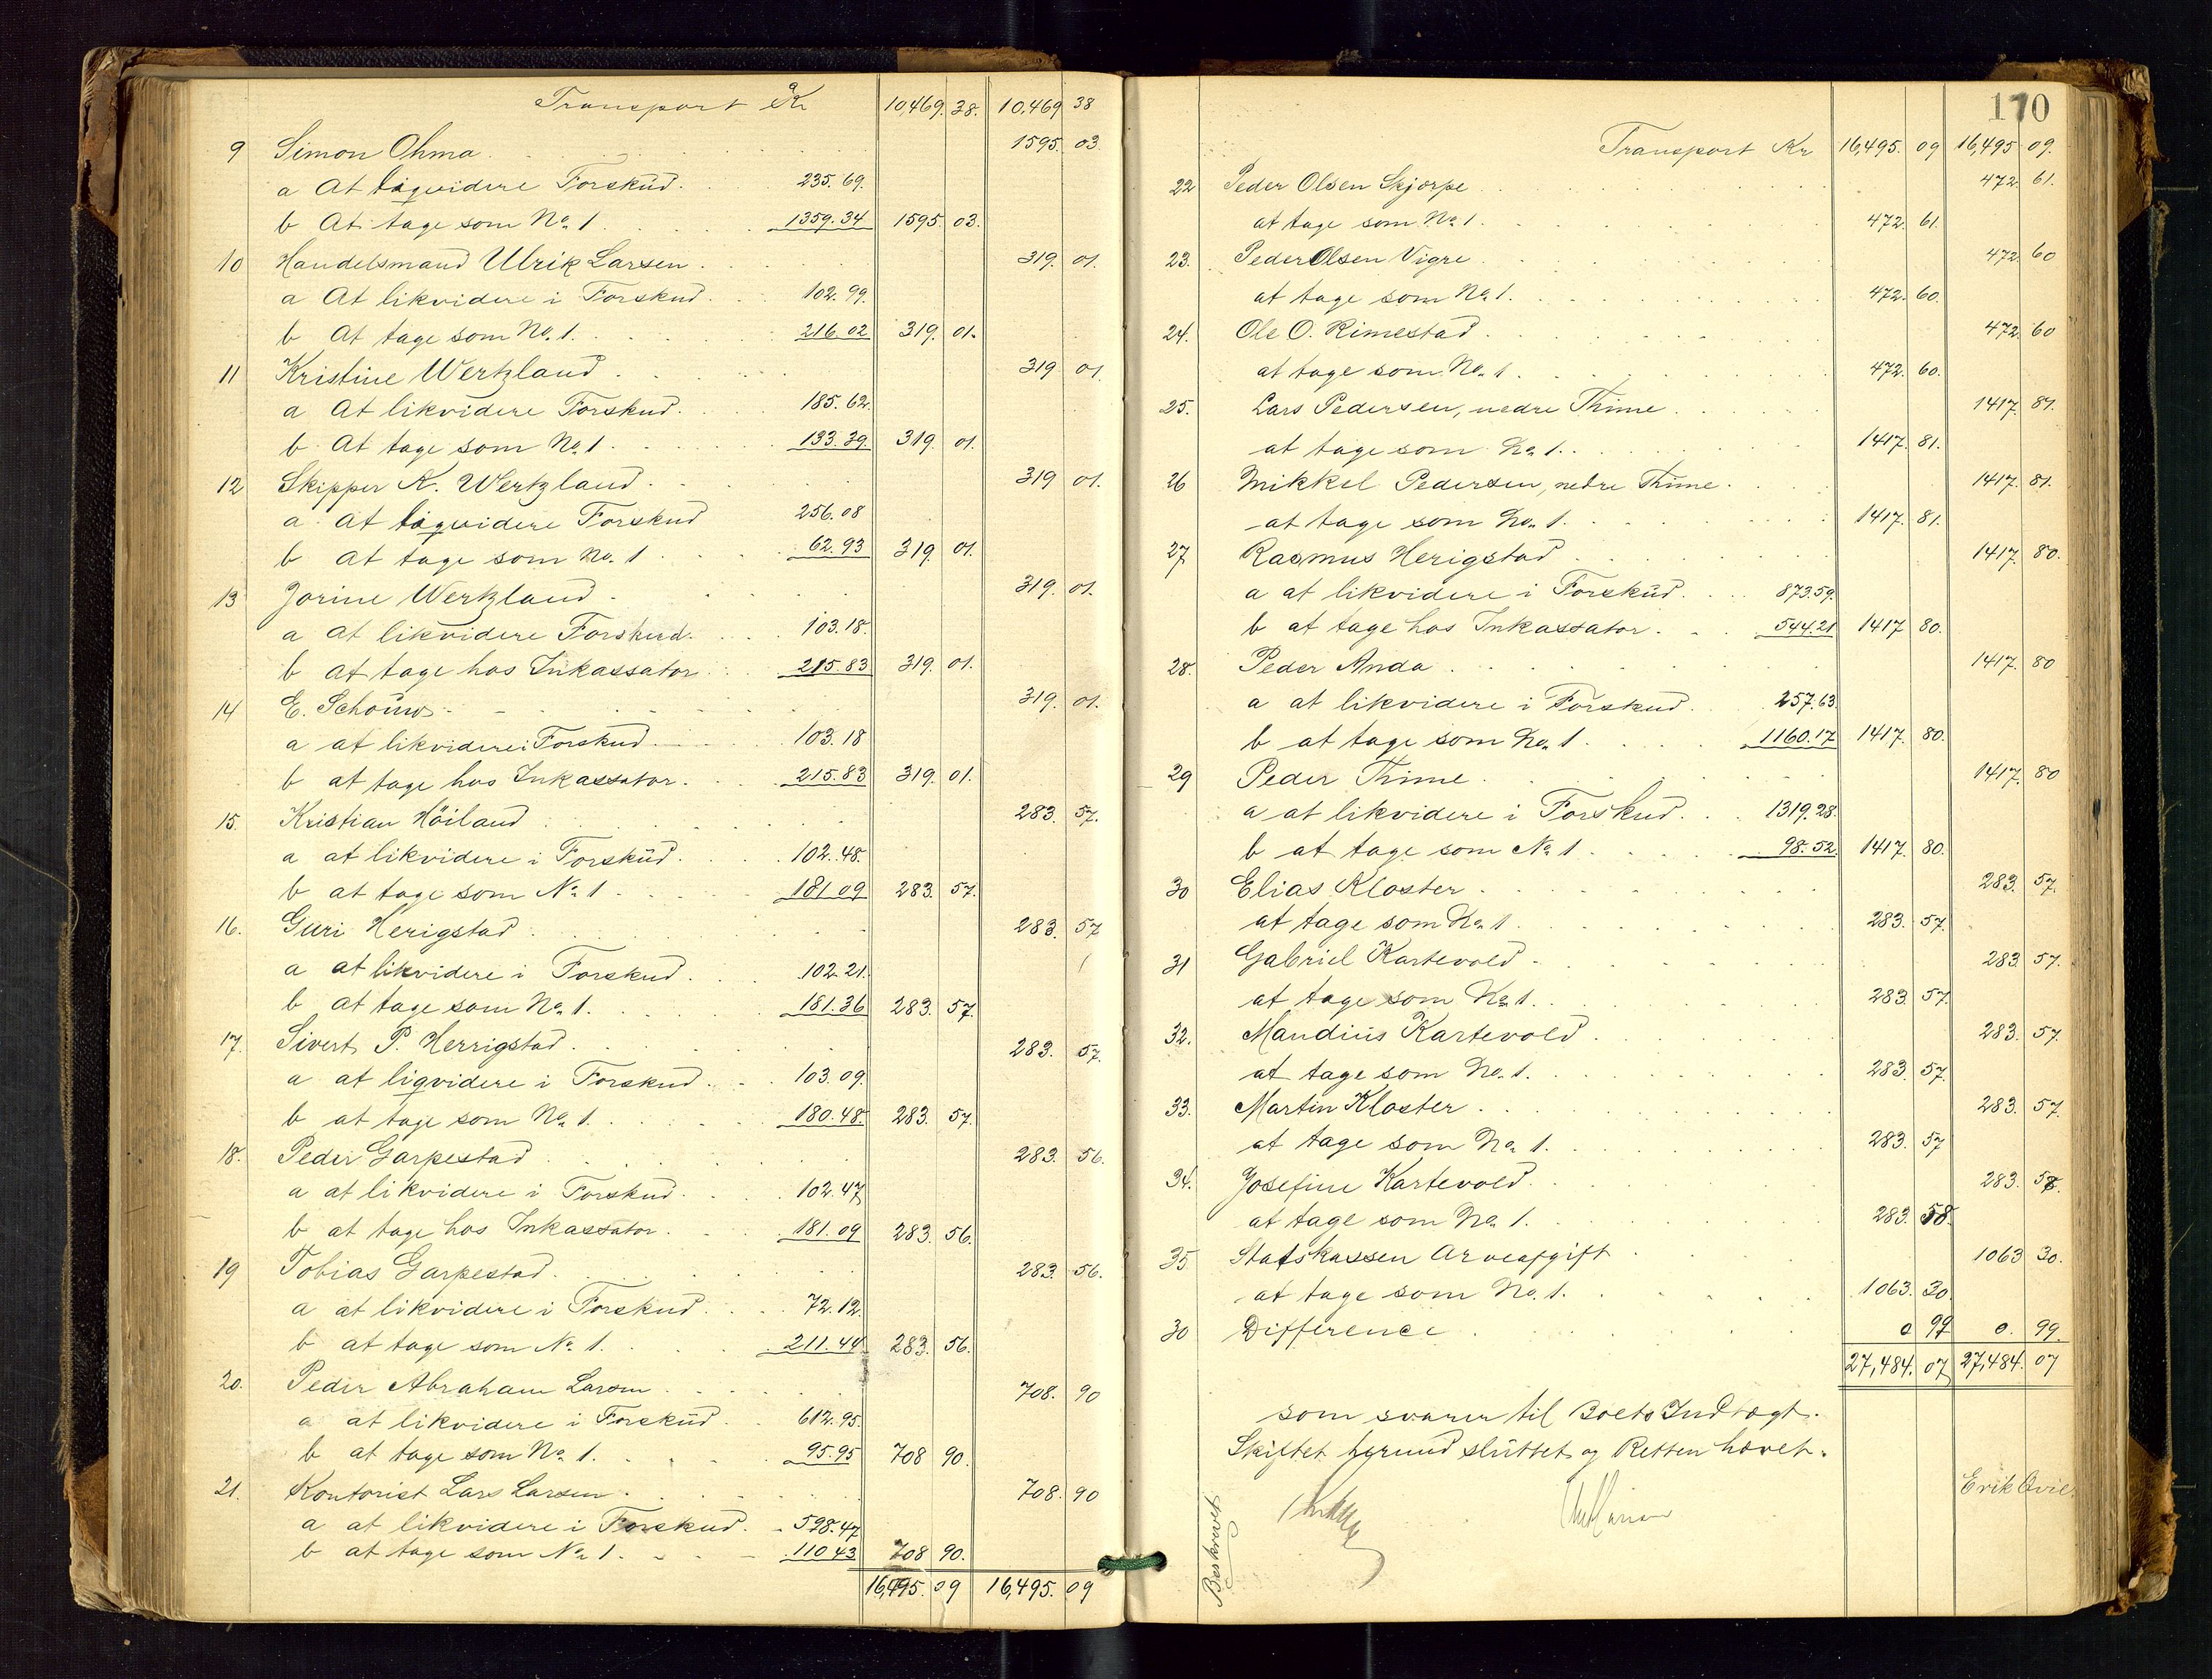 Transport Kr 10,469. 38. 10,469 38
9 Simon Ohma. 1595. 03
a At liqvidere Forskud. 235. 69.
b At tage som No 1. 1359.34 1595. 03.
10 Handelsmand Ulrik Larsen. 319. 01.
a At likvidere i Forskud. 102. 99.
b At tage som No. 1. 216.02 319. 01.
11 Kristine Wertzland. 319 01.
a At likvidere Forskud. 185. 62.
b At tage som No 1. 133.39. 319. 01.
12 Skipper K. Wertzland. 319 01.
a. at liqvidere Forskud 256.08
b at tage som No. 1 62.93 319. 01.
13 Jorine Wertzland. 319. 01.
a at likvidere Forskud. 103.18.
b at tage hos Inkassator. 215.83 319. 01.
14 E. Schouw 319. 01.
a at likvidere i Forskud 103.18
b at tage hos Inkassator. 215.83 319. 01.
15. Kristian Höiland 283. 57.
a at likvidere i Forskud. 102.48.
b at tage som No 1. 181.09 283. 57.
16. Guri Herigstad. 283. 57
a at likvidere i Forskud. 102.21.
b at tage som No 1. 181.36 283. 57.
17. Sivert P. Herrigstad. 283. 57.
a at liqvidere i Forskud. 103.09.
b at tage som No 1. 180.48. 283. 57.
18. Peder Garpestad 283. 56.
a at likvidere i Forskud. 102.47
b at tage hos Inkassator. 181.09 283. 56.
19 Tobias Garpestad. 283. 56.
a at likvidere i Forskud. 72.12.
b at tage som No 1. 211.44 283. 56.
20. Peder Abraham Larsen. 708. 90
a at likvidere i Forskud. 612.95.
b at tage som No 1. 95.95 708 90.
21. Kontorist Lars Larsen. 708. 90
a at likvidere i Forskud. 598.47
b at tage som No 1. 110 43 708 90.
16,495. 09 16,495. 09
170
Transport Kr 16,495. 09 16,495 09.
22 Peder Olsen Skjorpe 472. 61.
at tage som No 1. 472. 61.
23. Peder Olsen Vigre 472. 60
at tage som No 1. 472. 60.
24. Ole O. Rimestad. 472. 60
at tage som No. 1. 472. 60.
25. Lars Pedersen, nedre Thime. 1417. 81.
at tage som No 1. 1417. 81.
26 Mikkel Pedersen, nedre Thime. 1417. 81.
at tage som No. 1. 1417. 81.
27 Rasmus Herigstad 1417. 80.
a at likvidere i Forskud. 873.59.
b at tage hos Inkassator. 544.21 1417 80.
28. Peder Anda 1417. 80
a at likvidere i Forskud. 257.63.
b at tage som No. 1. 1160.17 1417. 80.
29 Peder Thime 1417. 80
a at likvidere i Forskud. 1319.28.
b at tage som No 1 98.52 1417. 80.
30 Elias Kloster 283. 57.
at tage som No. 1. 283. 57.
31 Gabriel Kartevold 283 57.
at tage som No 1. 283. 57.
32. Mandius Kartevold 283. 57.
at tage som No. 1. 283. 57.
33. Martin Kloster. 283. 57.
at tage som No 1. 283. 57
34. Josefine Kartevold. 283. 58.
at tage som No 1. 283. 58.
35 Statskassen Arveafgift 1063 30.
at tage som No. 1. 1063. 30.
30 Difference 0 99 0. 99.
27,484. 07 27,484. 07
som svarer til Boets Indtægt.
Skiftet herved sluttet og Retten hævet.
Erik
Beskrevet